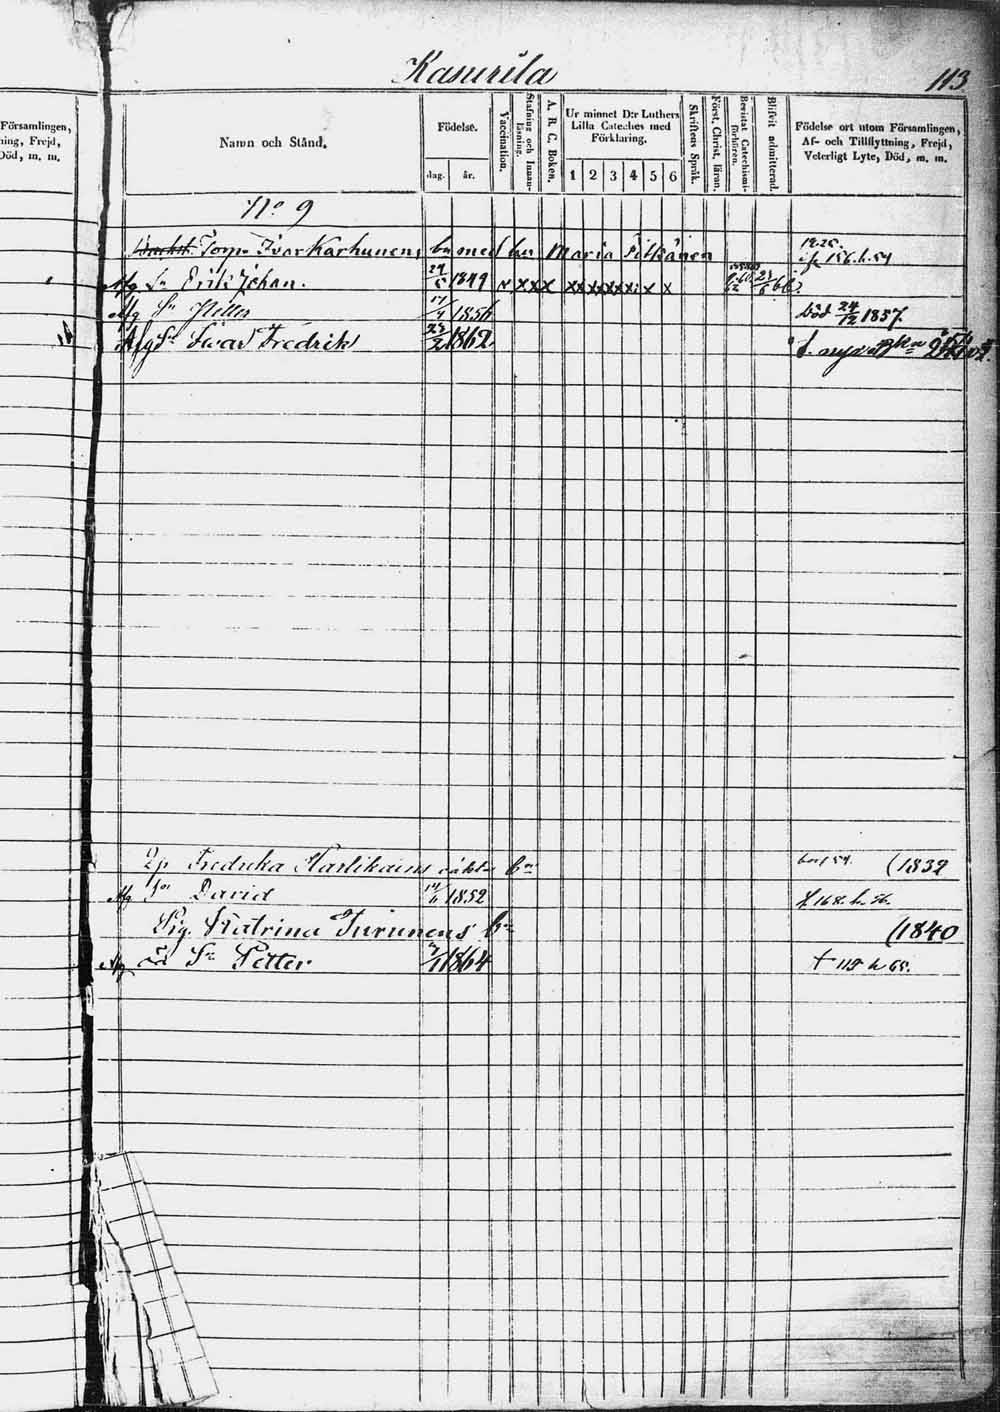 Kasurila
113
Församlingen,
ning, Frejd,
Död, m. m.
Namn och Stånd.
Födelse.
dag. år.
Vaccination.
Stafning och Innan-
läsning.
A. B. C. Boken.
Ur minnet D:r Luthers
Lilla Cateches med
Förklaring.
1 2 3 4 5 6
Skriftens Språk.
Först. Christ. läran.
Bevistat Catechismi-
förhören.
Blifvit admitterad.
Födelse ort utom Församlingen,
Af- och Tillflyttning, Frejd,
Veterligt Lyte, Död, m. m.
No 9
Torp. Ivar Karhunens bn med hu Maria Pitkänen
156. h. 54
Afg Sn Erik Johan. 1849 x x x x x x x x x x x
Afg Sn Petter 1856 Död 24/12 1857.
Afg Sn Ivar Fredrik 23/2 1862
Fredrika Karlikains oäkta bn (1832
Afg Sn David 1852 168. h.
Pig. Katrina Turunens bn (1840
Afg oä Sn Petter 1864 † 119 h 65.